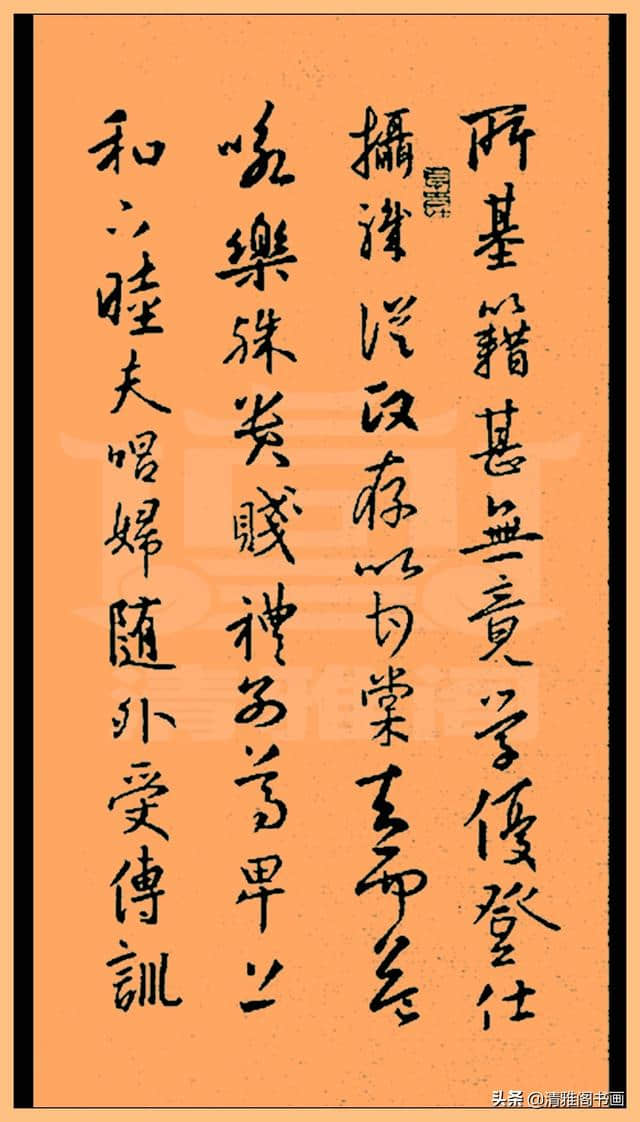 所基籍甚無竟学優登仕
攝職從政存以甘棠去而益
咏樂殊貴賤禮別尊卑上
和下睦夫唱婦随外受傅訓
清雅阁
头条 @清雅阁书画